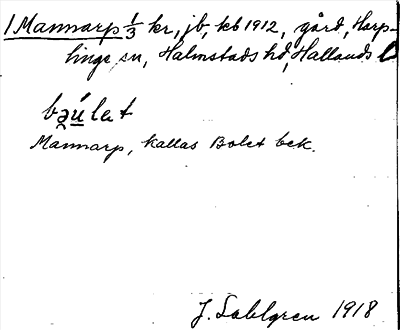 1 Mannarp 1/3 kr, jb, kb 1912, gård, Harp-
linge sn, Halmstads hd, Hallands l
bəùlat
Mannarp, kallas Bolet bek.
J. Sahlgren 1918